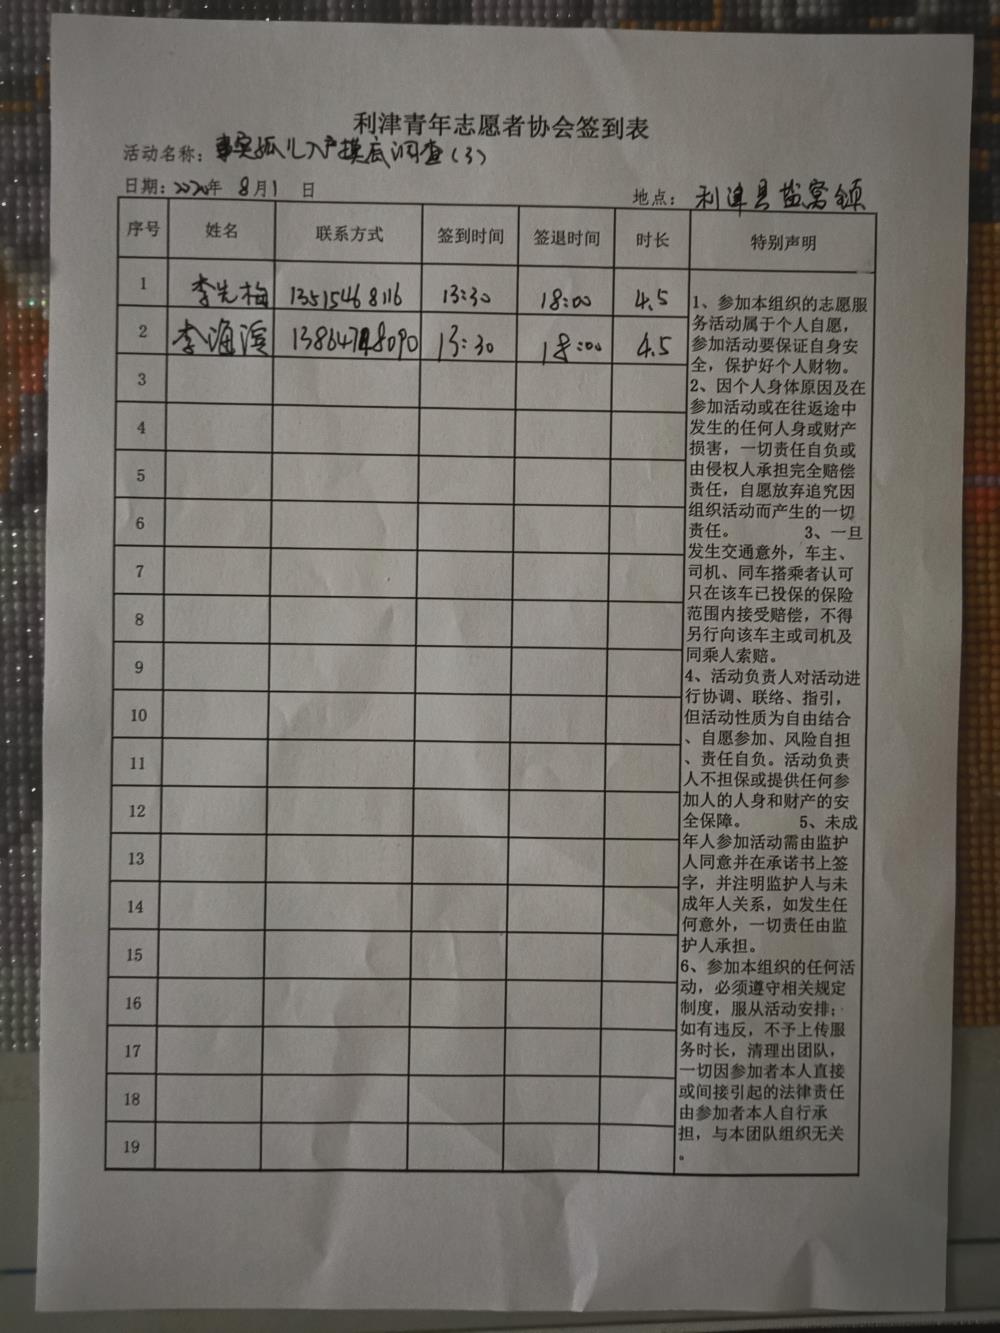 利津青年志愿者协会签到表
活动名称：事实孤儿入户摸底调查（3）
日期：2020年 8月1 日 地点：利津县盐窝镇
序号 姓名 联系方式 签到时间 签退时间 时长 特别声明
1 李先梅 13515468116 13:30 18:00 4.5
2 李海滨 13:30 18:00 4.5
3
4
5
6
7
8
9
10
11
12
13
14
15
16
17
18
19
1、参加本组织的志愿服
务活动属于个人自愿，
参加活动要保证自身安
全，保护好个人财物。
2、因个人身体原因及在
参加活动或在往返途中
发生的任何人身或财产
损害，一切责任自负或
由侵权人承担完全赔偿
责任，自愿放弃追究因
组织活动而产生的一切
责任。 3、一旦
发生交通意外，车主、
司机、同车搭乘者认可
只在该车已投保的保险
范围内接受赔偿，不得
另行向该车主或司机及
同乘人索赔。
4、活动负责人对活动进
行协调、联络、指引，
但活动性质为自由结合
、自愿参加、风险自担
、责任自负。活动负责
人不担保或提供任何参
加人的人身和财产的安
全保障。 5、未成
年人参加活动需由监护
人同意并在承诺书上签
字，并注明监护人与未
成年人关系，如发生任
何意外，一切责任由监
护人承担。
6、参加本组织的任何活
动，必须遵守相关规定
制度，服从活动安排；
如有违反，不予上传服
务时长，清理出团队，
一切因参加者本人直接
或间接引起的法律责任
由参加者本人自行承
担，与本团队组织无关
。